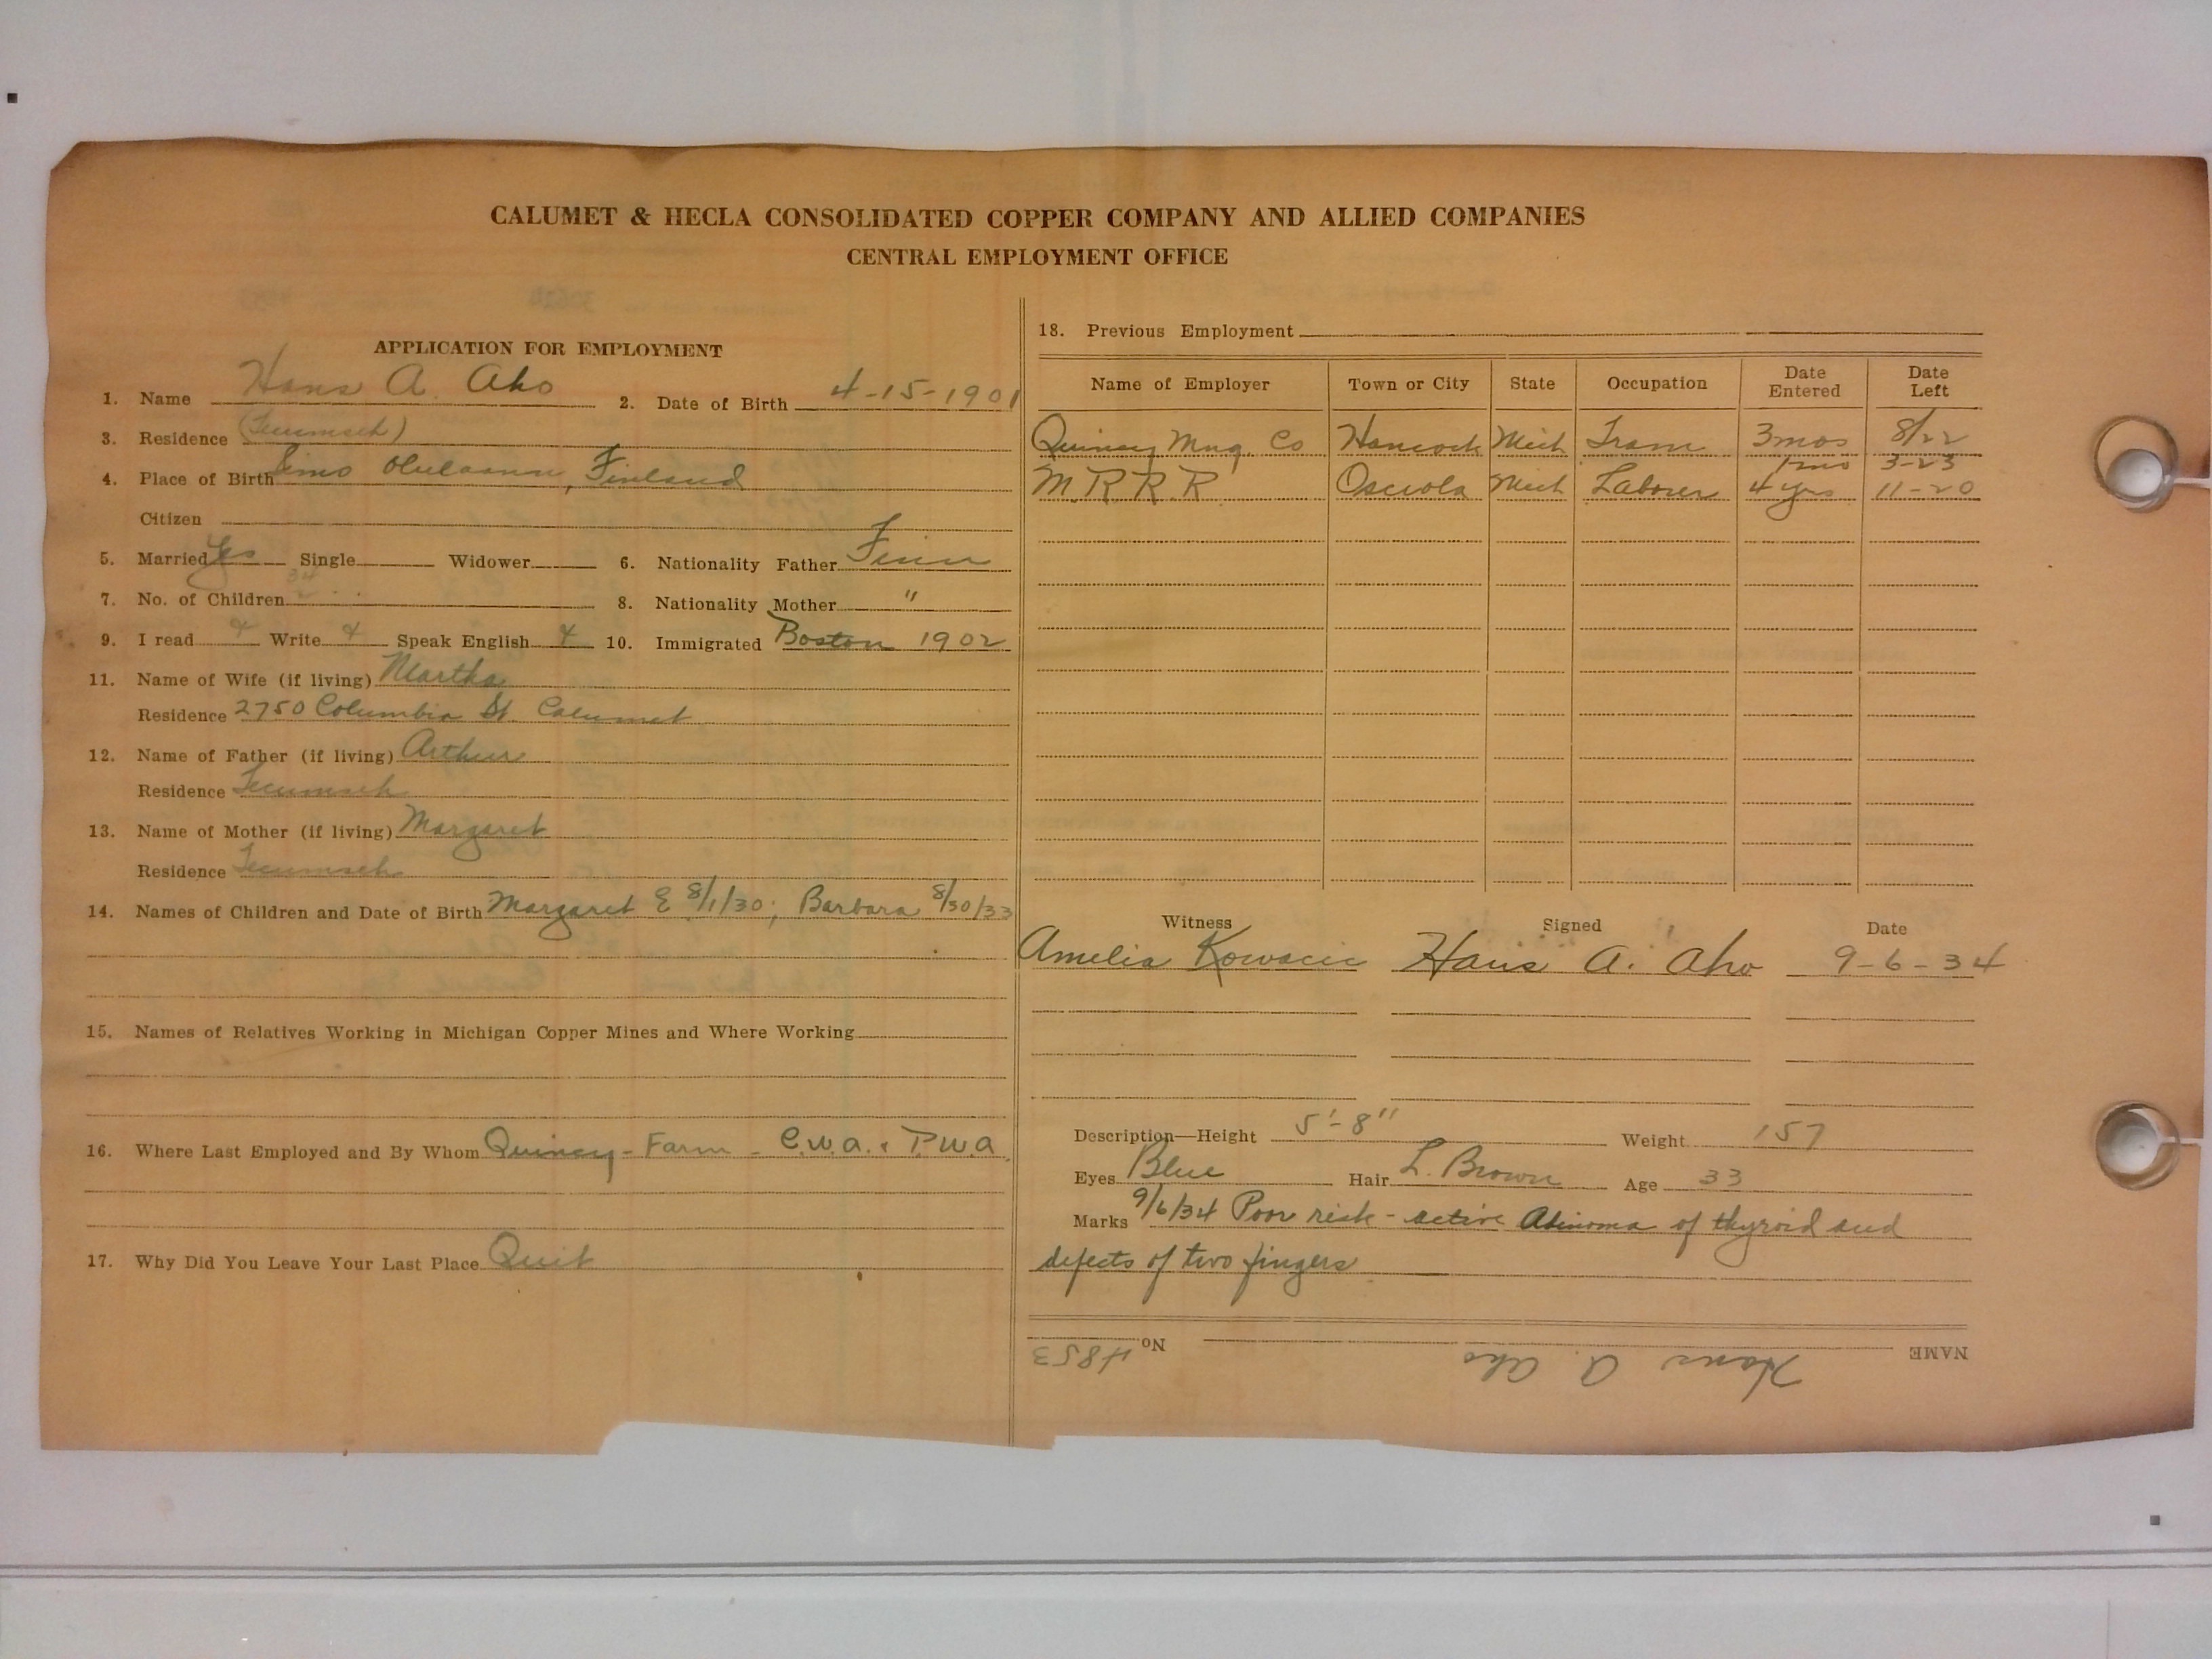 CALUMET & HECLA CONSOLIDATED COPPER COMPANY AND ALLIED COMPANIES
CENTRAL EMPLOYMENT OFFICE
APPLICATION FOR EMPLOYMENT
1. Name Hans A. Aho 2. Date of Birth 4-15-1901
3. Residence (Tecumseh)
4. Place of Birth Simo Finland
Citizen
5. Married Yes Single Widower 6. Nationality Father Finn
7. No. of Children 8. Nationality Mother "
9. I read Write Speak English 10. Immigrated Boston 1902
11. Name of Wife (if living) Martha
Residence 2750 Columbia St. Calumet
12. Name of Father (if living) Arthur
Residence Tecumseh
13. Name of Mother (if living) Margaret
Residence Tecumseh
14. Names of Children and Date of Birth Margaret E 8/1/30; Barbara 8/30/33
15. Names of Relatives Working in Michigan Copper Mines and Where Working
16. Where Last Employed and By Whom Quincy - Farm - C.W.A. & P.W.A.
17. Why Did You Leave Your Last Place Quit
18. Previous Employment
Name of Employer Town or City State Occupation Date Entered Date Left
Quincy Mng. Co Hancock Mich Tram 3mos 8/22
1mo 3-23
M.R.R.R. Osceola Mich Laborer 4 yrs 11-20
Witness Signed Date
Amelia Kovacic Hans A. Aho 9-6-34
Description—Height 5'-8" Weight 157
Eyes Blue Hair L. Brown Age 33
Marks 9/6/34 Poor risk - active Adinoma of thyroid and
defects of two fingers
NAME Hans A. Aho No. 4853